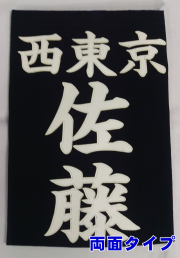 西東京
佐藤
両面タイプ